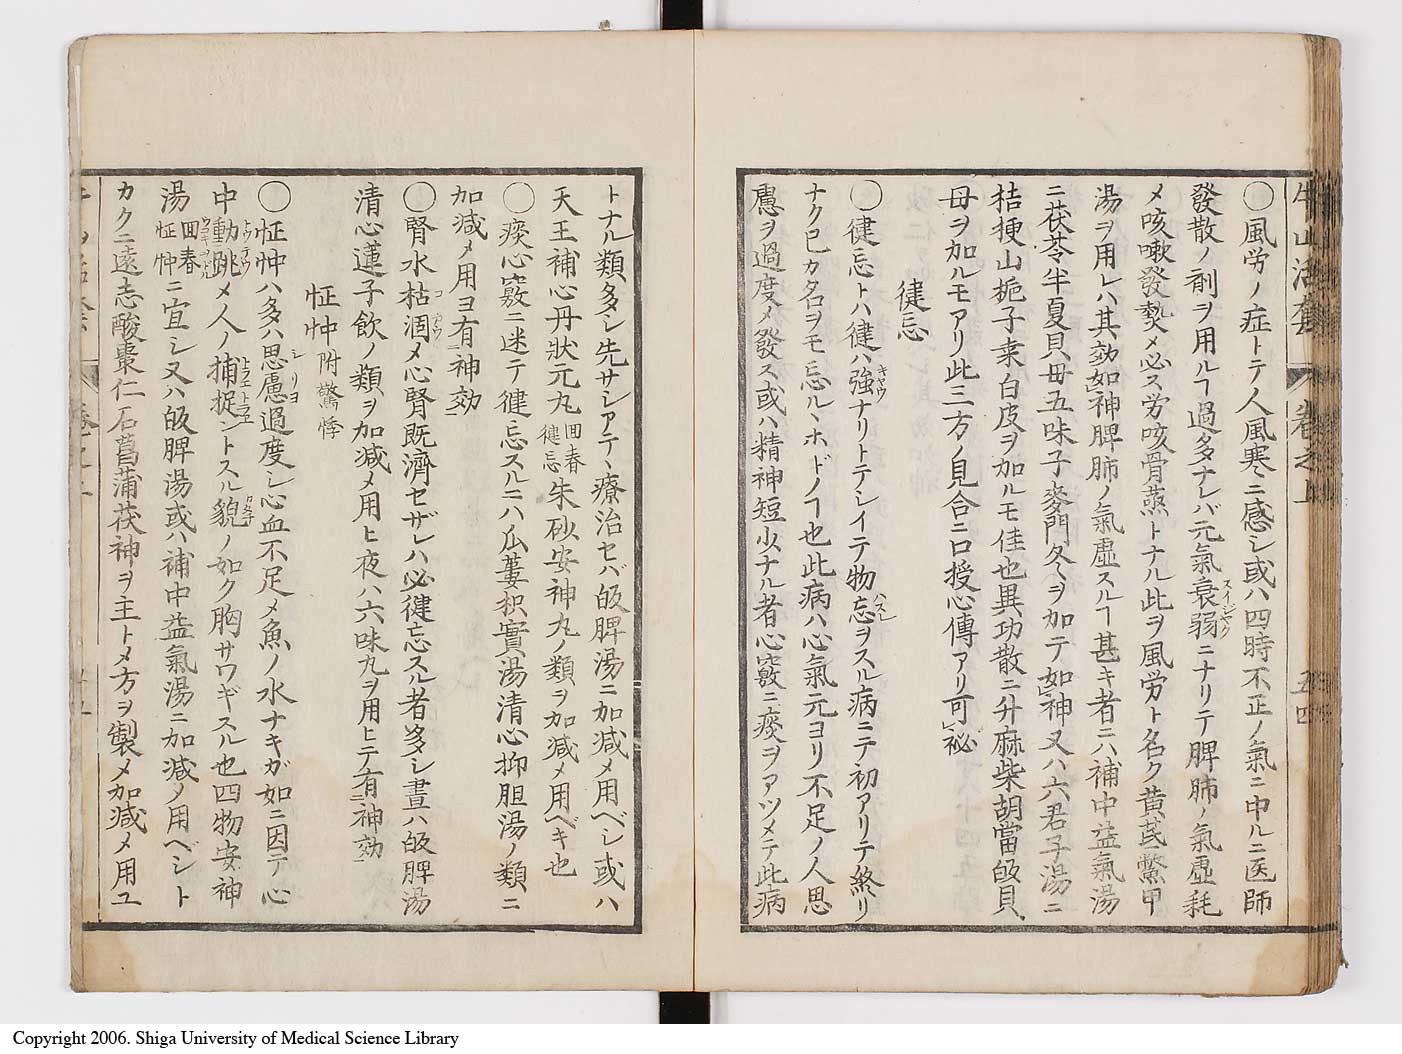 牛山活套 卷之上 五四
◯風労ノ症トテ人風寒ニ感シ或ハ四時不正ノ氣ニ中ルニ医師
發散ノ剤ヲ用ルヿ過多ナレバ元氣衰弱スイジヤクニナリテ脾肺ノ氣虚耗
メ咳嗽發熱メ必ス労咳骨蒸トナル此ヲ風労ト名ク黄芪鱉甲
湯ヲ用レハ其効如神脾肺ノ氣虚スルヿ甚キ者ニハ補中益氣湯
ニ茯苓半夏貝母五味子麥門冬ヲ加テ如神又ハ六君子湯ニ
桔梗山梔子桒白皮ヲ加ルモ佳也異功散ニ升麻柴胡當皈貝
母ヲ加ルモアリ此三方ノ見合ニ口授心傳アリ可祕
健忘
◯健忘トハ健ハ強キヤウナリトテシイテ物忘ヲスル病ニテ初アリテ終リ
ナク已カ名ヲモ忘ルヽホドノヿ也此病ハ心氣元ヨリ不足ノ人思
慮ヲ過度メ發ス或ハ精神短少ナル者心竅ニ痰ヲアツメテ此病
トナル類多シ先サシアテヽ療治セバ皈脾湯ニ加減メ用ベシ或ハ
天王補心丹狀元丸回春健忘朱砂安神丸ノ類ヲ加減メ用ベキ也
◯痰心竅ニ迷テ健忘スルニハ瓜蔞枳實湯清心抑胆湯ノ類ニ
加減メ用ヨ有神効
◯腎水枯コ涸メ心腎既濟セザレハ必健忘スル者多シ晝ハ皈脾湯
清心蓮子飲ノ類ヲ加減メ用ヒ夜ハ六味丸ヲ用ヒテ有神効
怔忡 附驚悸
◯怔忡ハ多ハ思慮シリヨ過度シ心血不足メ魚ノ水ナキガ如ニ因テ心
中動跳メ人ノ捕捉トラエトラエントスル貌ノ如ク胸サワギスル也四物安神
湯回春怔忡ニ宜シ又ハ皈脾湯或ハ補中益氣湯ニ加減ノ用ベシト
カクニ遠志酸棗仁石菖蒲茯神ヲ主トメ方ヲ製メ加減メ用ユ